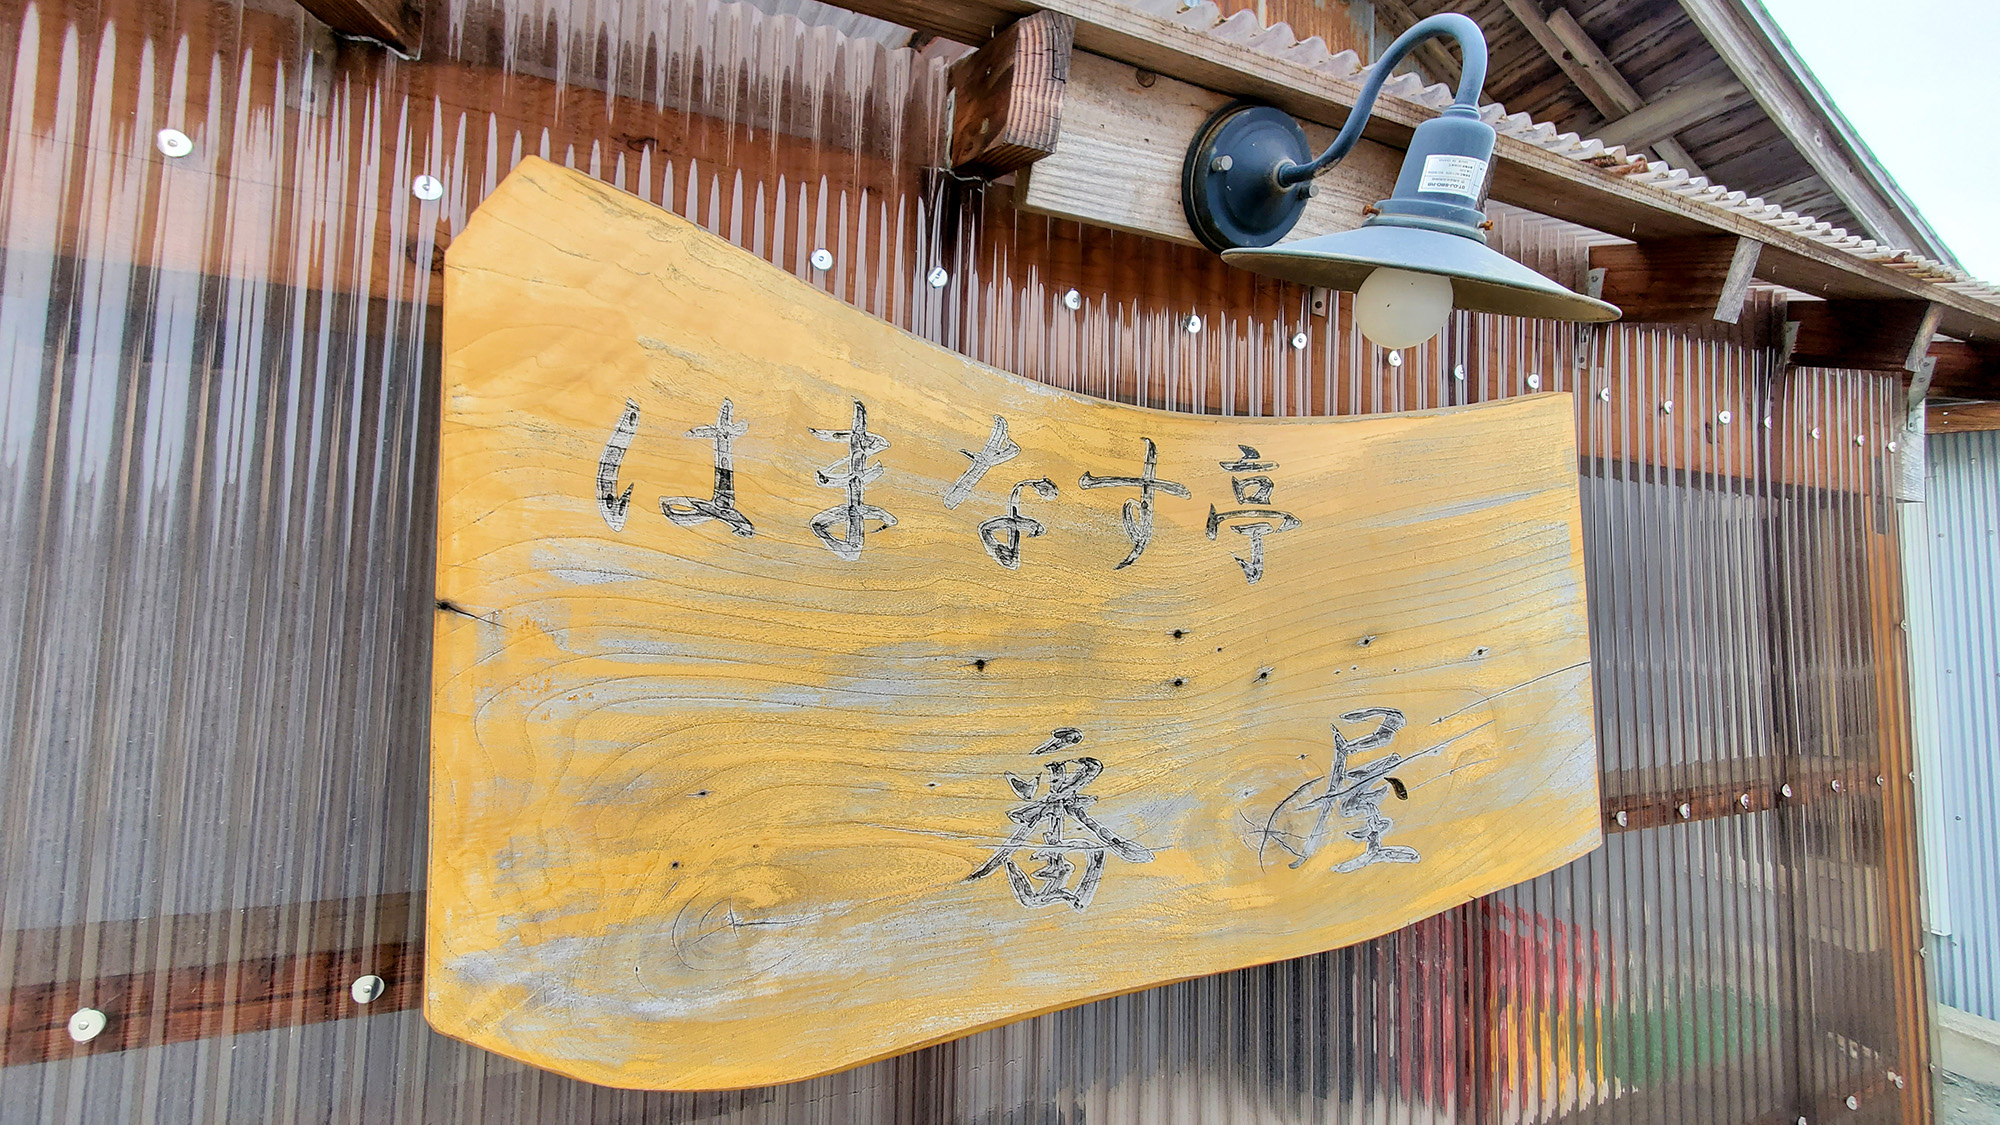 はまなす亭
番屋